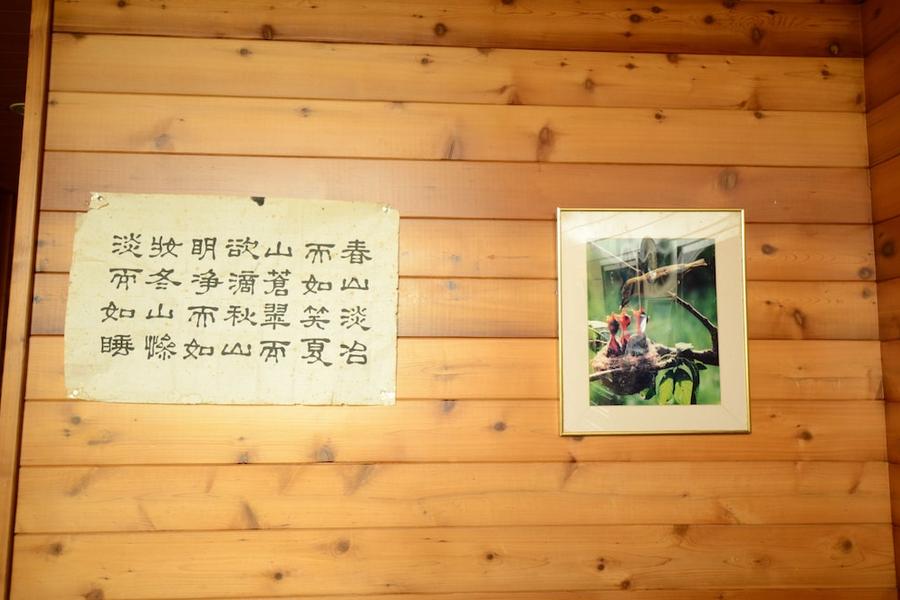 春山淡冶
而如笑夏
山蒼翠而
欲滴秋山
明浄而如
妝冬山惨
淡而如睡